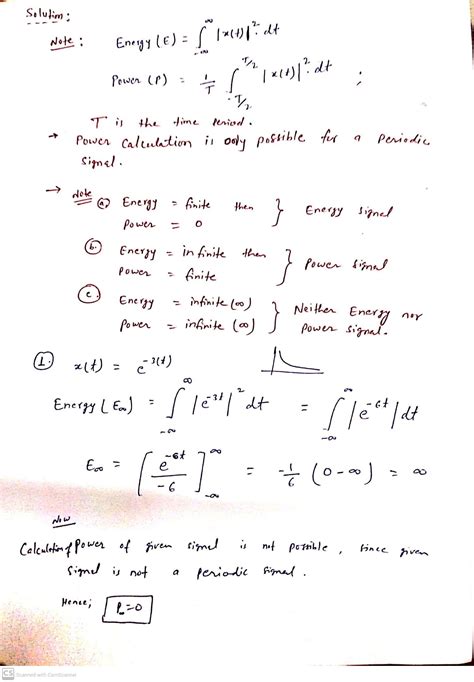 Solution:
Note: Energy (E) = ∫_{-∞}^{∞} |x(t)|². dt
Power (P) = 1/T ∫_{-T/2}^{T/2} |x(t)|². dt ;
T is the time period.
→ Power Calculation is only possible for a periodic
signal.
→ Note (a) Energy = finite then } Energy signal
Power = 0
(b.) Energy = infinite then } Power signal
Power = finite
(c.) Energy = infinite (∞) } Neither Energy nor
Power = infinite (∞) Power signal.
(1.) x(t) = e^{-3(t)}
Energy (E∞) = ∫_{-∞}^{∞} |e^{-3t}|² dt = ∫_{-∞}^{∞} |e^{-6t}| dt
E∞ = [e^{-6t}/-6]_{-∞}^{∞} = -1/6 (0-∞) = ∞
Now
Calculation of Power of given signal is not possible, since given
signal is not a periodic signal.
Hence; P∞=0
CS Scanned with CamScanner